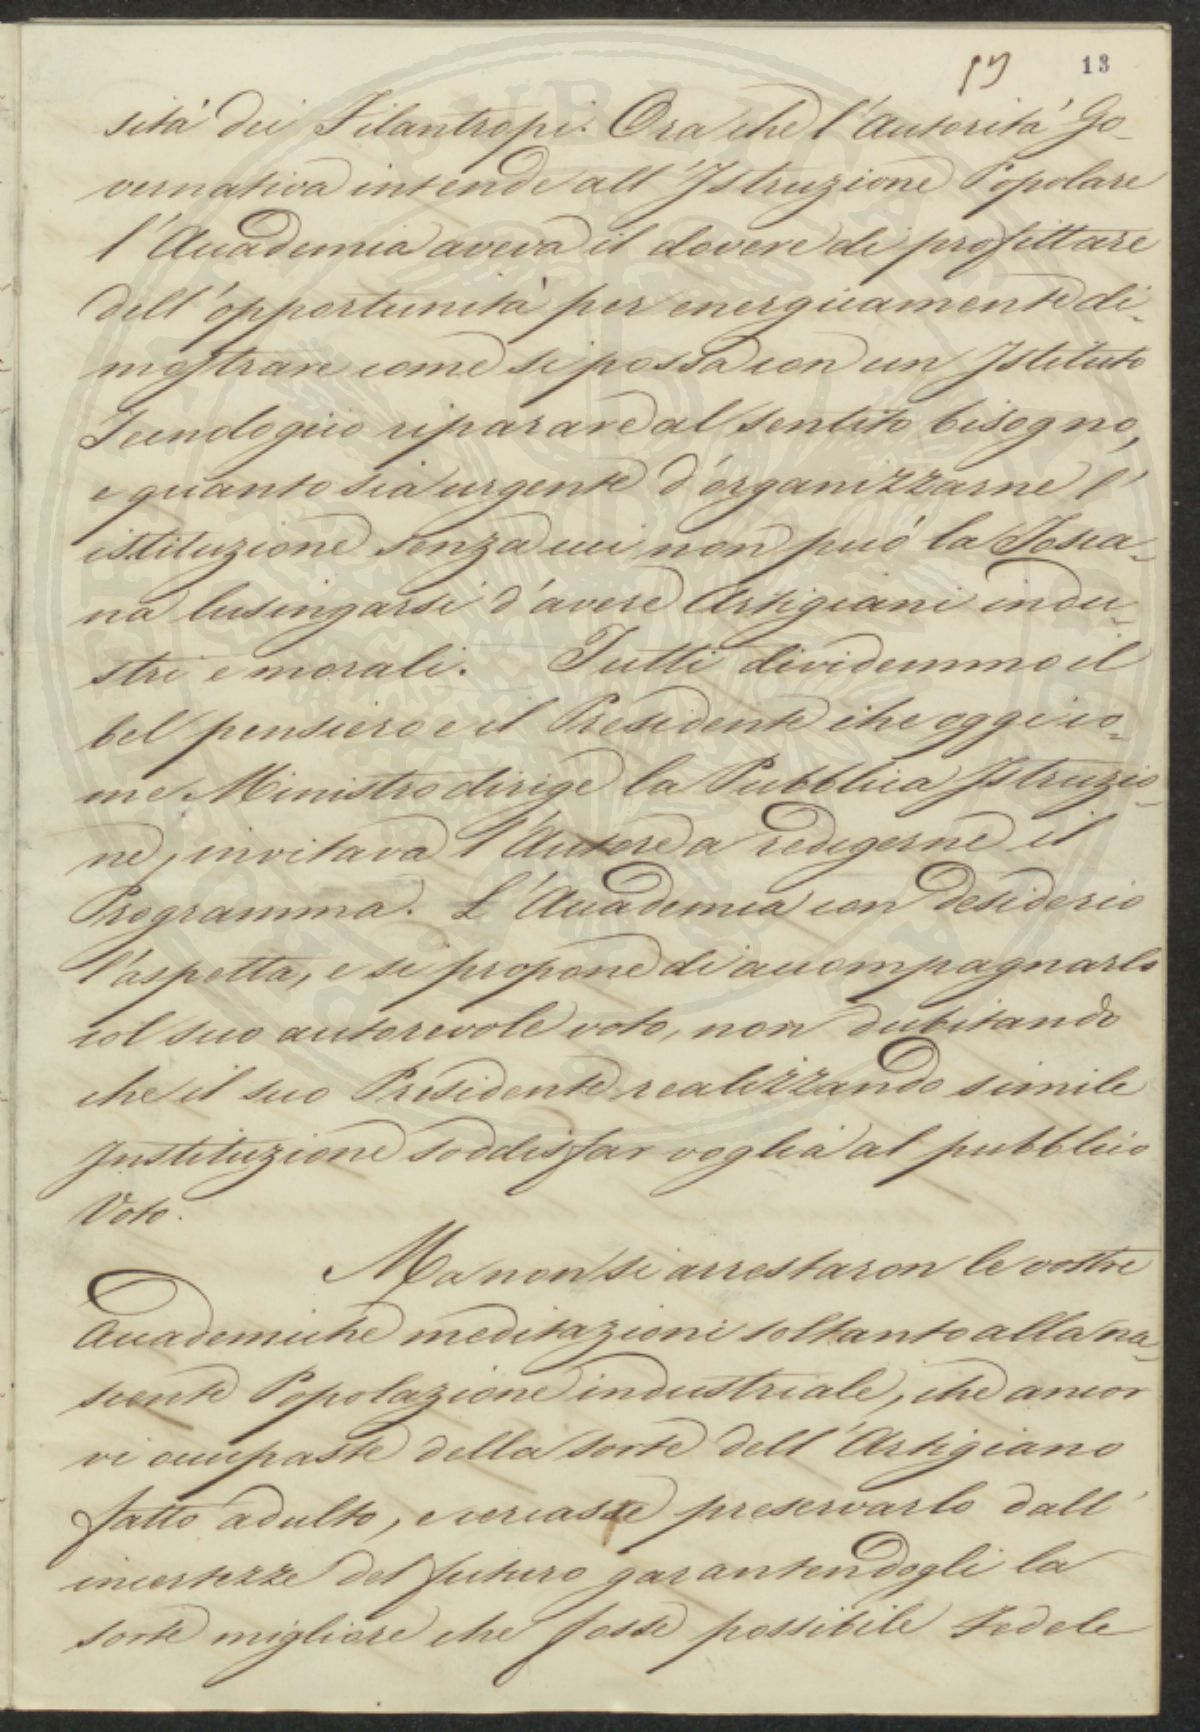 13
sità dei Filantropi. Ora che l'Autorità Go-
vernativa intende all'Istruzione Popolare
l'Accademia aveva il dovere di profittare
dell'opportunità per energicamente di-
mostrare come si possa con un Istituto
Tecnologico riparare al sentito bisogno,
e quanto sia urgente d'organizzarne l'
istituzione senza cui non può la Tosca-
na lusingarsi d'avere Artigiani indu-
stri e morali. Tutti dividemmo il
bel pensiero e il Presidente che oggi co-
me Ministro dirige la Pubblica Istruzio-
ne, invitava l'Autore a redigerne il
Programma. L'Accademia con desiderio
l'aspetta, e si propone di accompagnarlo
col suo autorevole voto, non dubitando
che il suo Presidente realizzando simile
Instituzione soddisfar voglia al pubblico
Voto.
Ma non si arrestaron le vostre
Accademiche meditazioni soltanto alla na-
scente Popolazione industriale, che ancor
vi occupaste della sorte dell'Artigiano
fatto adulto, e cercaste preservarlo dall'
incertezze del futuro garantendogli la
sorte migliore che fosse possibile. Fedele